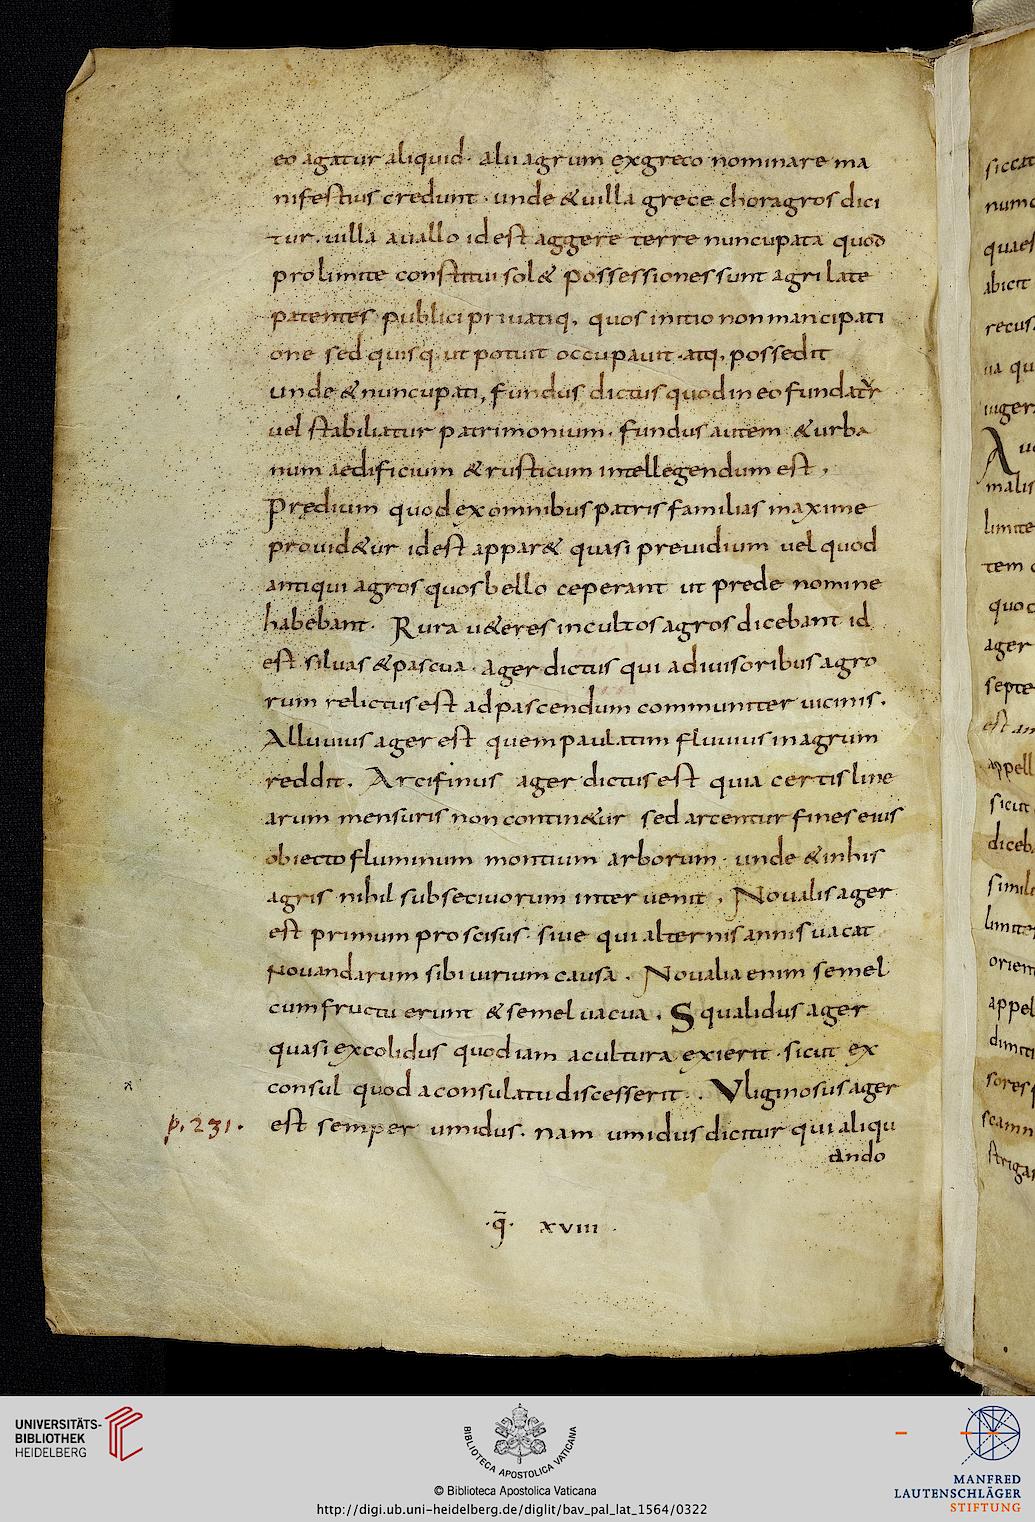 eo agatur aliquid · alii agrum ex greco nominare ma
nifestius credunt · unde & uilla grece choragros dici
tur · uilla auallo id est aggere terre nuncupata quod
pro limite constitui sol& possessiones sunt agri late
patentes publici priuatiq, quos initio non mancipati
one sed quisq. ut potuit occupauit · atq, possedit
unde & nuncupati, fundus dictus quod in eo fundatr
uel stabiliatur patrimonium · fundus autem & urba
num aedificium & rusticum intellegendum est,
Predium quod ex omnibus patris familias maxime
prouid&ur id est appar& quasi preuidium uel quod
antiqui agros quos bello ceperant ut prede nomine
habebant · Rura u&eres incultos agros dicebant id
est siluas & pascua · ager dictus qui adiuisoribus agro
rum relictus est ad pascendum communiter uicinis.
Alluuius ager est quem paulatim fluuius in agrum
reddit. Arcifinius ager dictus est quia certis line
arum mensuris non contin&ur sed arcentur fines eius
obiecto fluminum montium arborum · unde & in his
agris nihil subseciuorum inter uenit, Noualis ager
est primum proscisus · siue qui alternis annis uacat
Nouandarum sibi uirium causa. Noualia enim semel
cum fructu erunt & semel uacua. Squalidus ager
quasi excolidus quod iam a cultura exierit · sicut ex
consul quod a consulatu discesserit. Vliginosus ager
p. 231. est semper umidus. nam umidus dicitur qui aliqu
ando
·q̄· xviii ·
siccat
num
quaes
abicit
recus
na qu
iuger
A u
malis
limite
tem
quod
ager
septe
est an
appell
sicut
diceb
simil
limite
orien
appel
dimit
sores
scamn
strigar
UNIVERSITÄTS-
BIBLIOTHEK
HEIDELBERG
BIBLIOTECA APOSTOLICA VATICANA
© Biblioteca Apostolica Vaticana
http://digi.ub.uni-heidelberg.de/diglit/bav_pal_lat_1564/0322
MANFRED
LAUTENSCHLÄGER
STIFTUNG